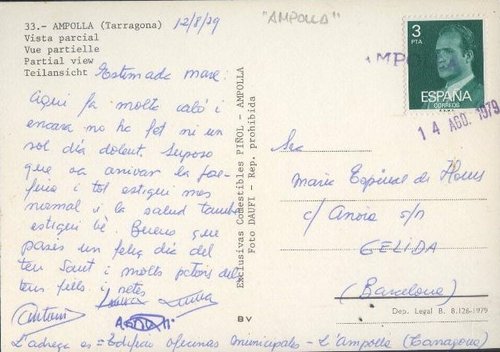 33.- AMPOLLA (Tarragona)
Vista parcial
Vue partielle
Partial view
Teilansicht
12/8/79
"AMPOLLA"
Estimada mare:
Aquí fa molta caló i
encara no ha fet ni un
sol dia dolent. Suposo
que va arrivar la
i tot estigui mes
normal i la salud també
estigui bé. Bueno que
pasis un feliç dia del
teu Sant i molts petons dels
teus fills i nétes
Antoni
Laura
L'adreça es = Edificis oficines municipales - L'Ampolla (Tarragona)
Exclusivas Codestibles PIÑOL - AMPOLLA
Foto DAUFI - Rep. prohibida
BV
3
PTA
ESPAÑA
CORREOS
AMPO
14 AGO. 1979
Sra
Maria Espinal de Hous
c/ Anoia s/n
GELIDA
(Barcelona)
Dep. Legal B. 8.126-1979